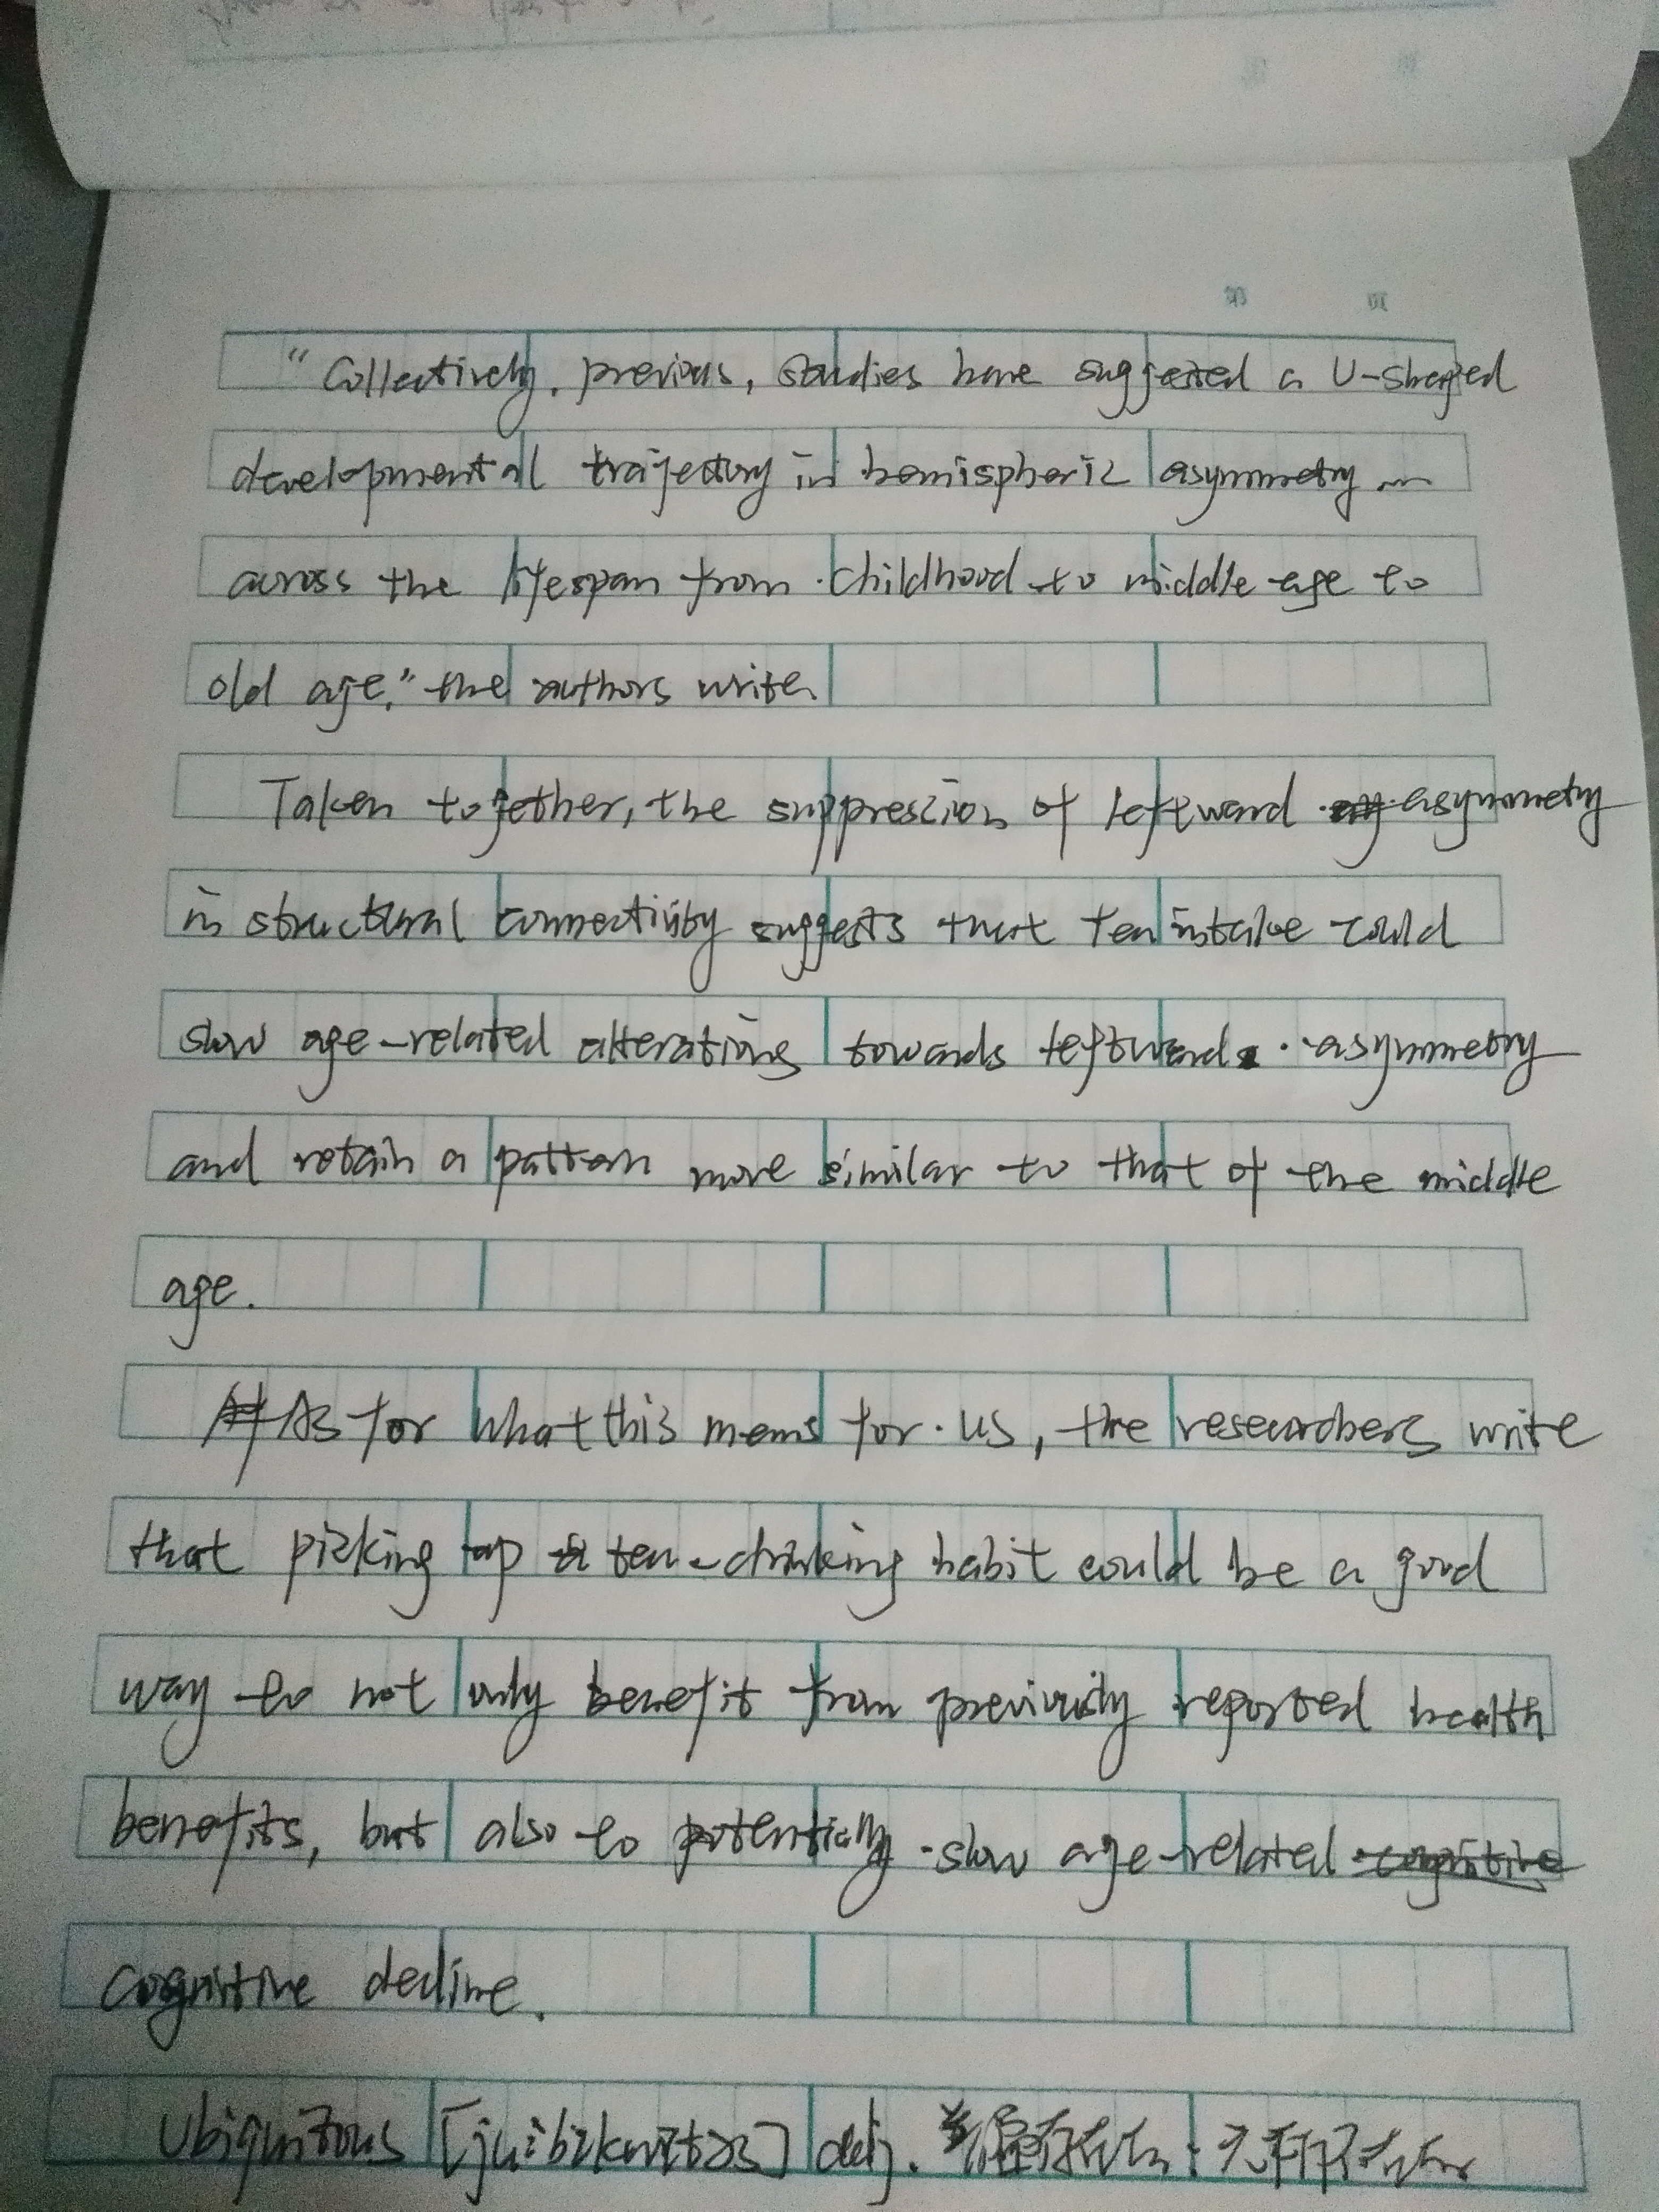 "Collectively, previous, studies have suggested a U-shaped
developmental trajectory in hemispheric asymmetry
across the lifespan from childhood to middle age to
old age," the authors write.
Taken together, the suppression of leftward asymmetry
in structural connectivity suggests that Tea intake could
slow age-related alterations towards leftward asymmetry
and retain a pattern more similar to that of the middle
age.
As for what this means for us, the researchers write
that picking up a tea-drinking habit could be a good
way to not only benefit from previously reported health
benefits, but also to potentially slow age-related cognitive
cognitive decline.
Ubiquitous [juːˈbɪkwɪtəs] adj. 普遍存在的；无所不在的